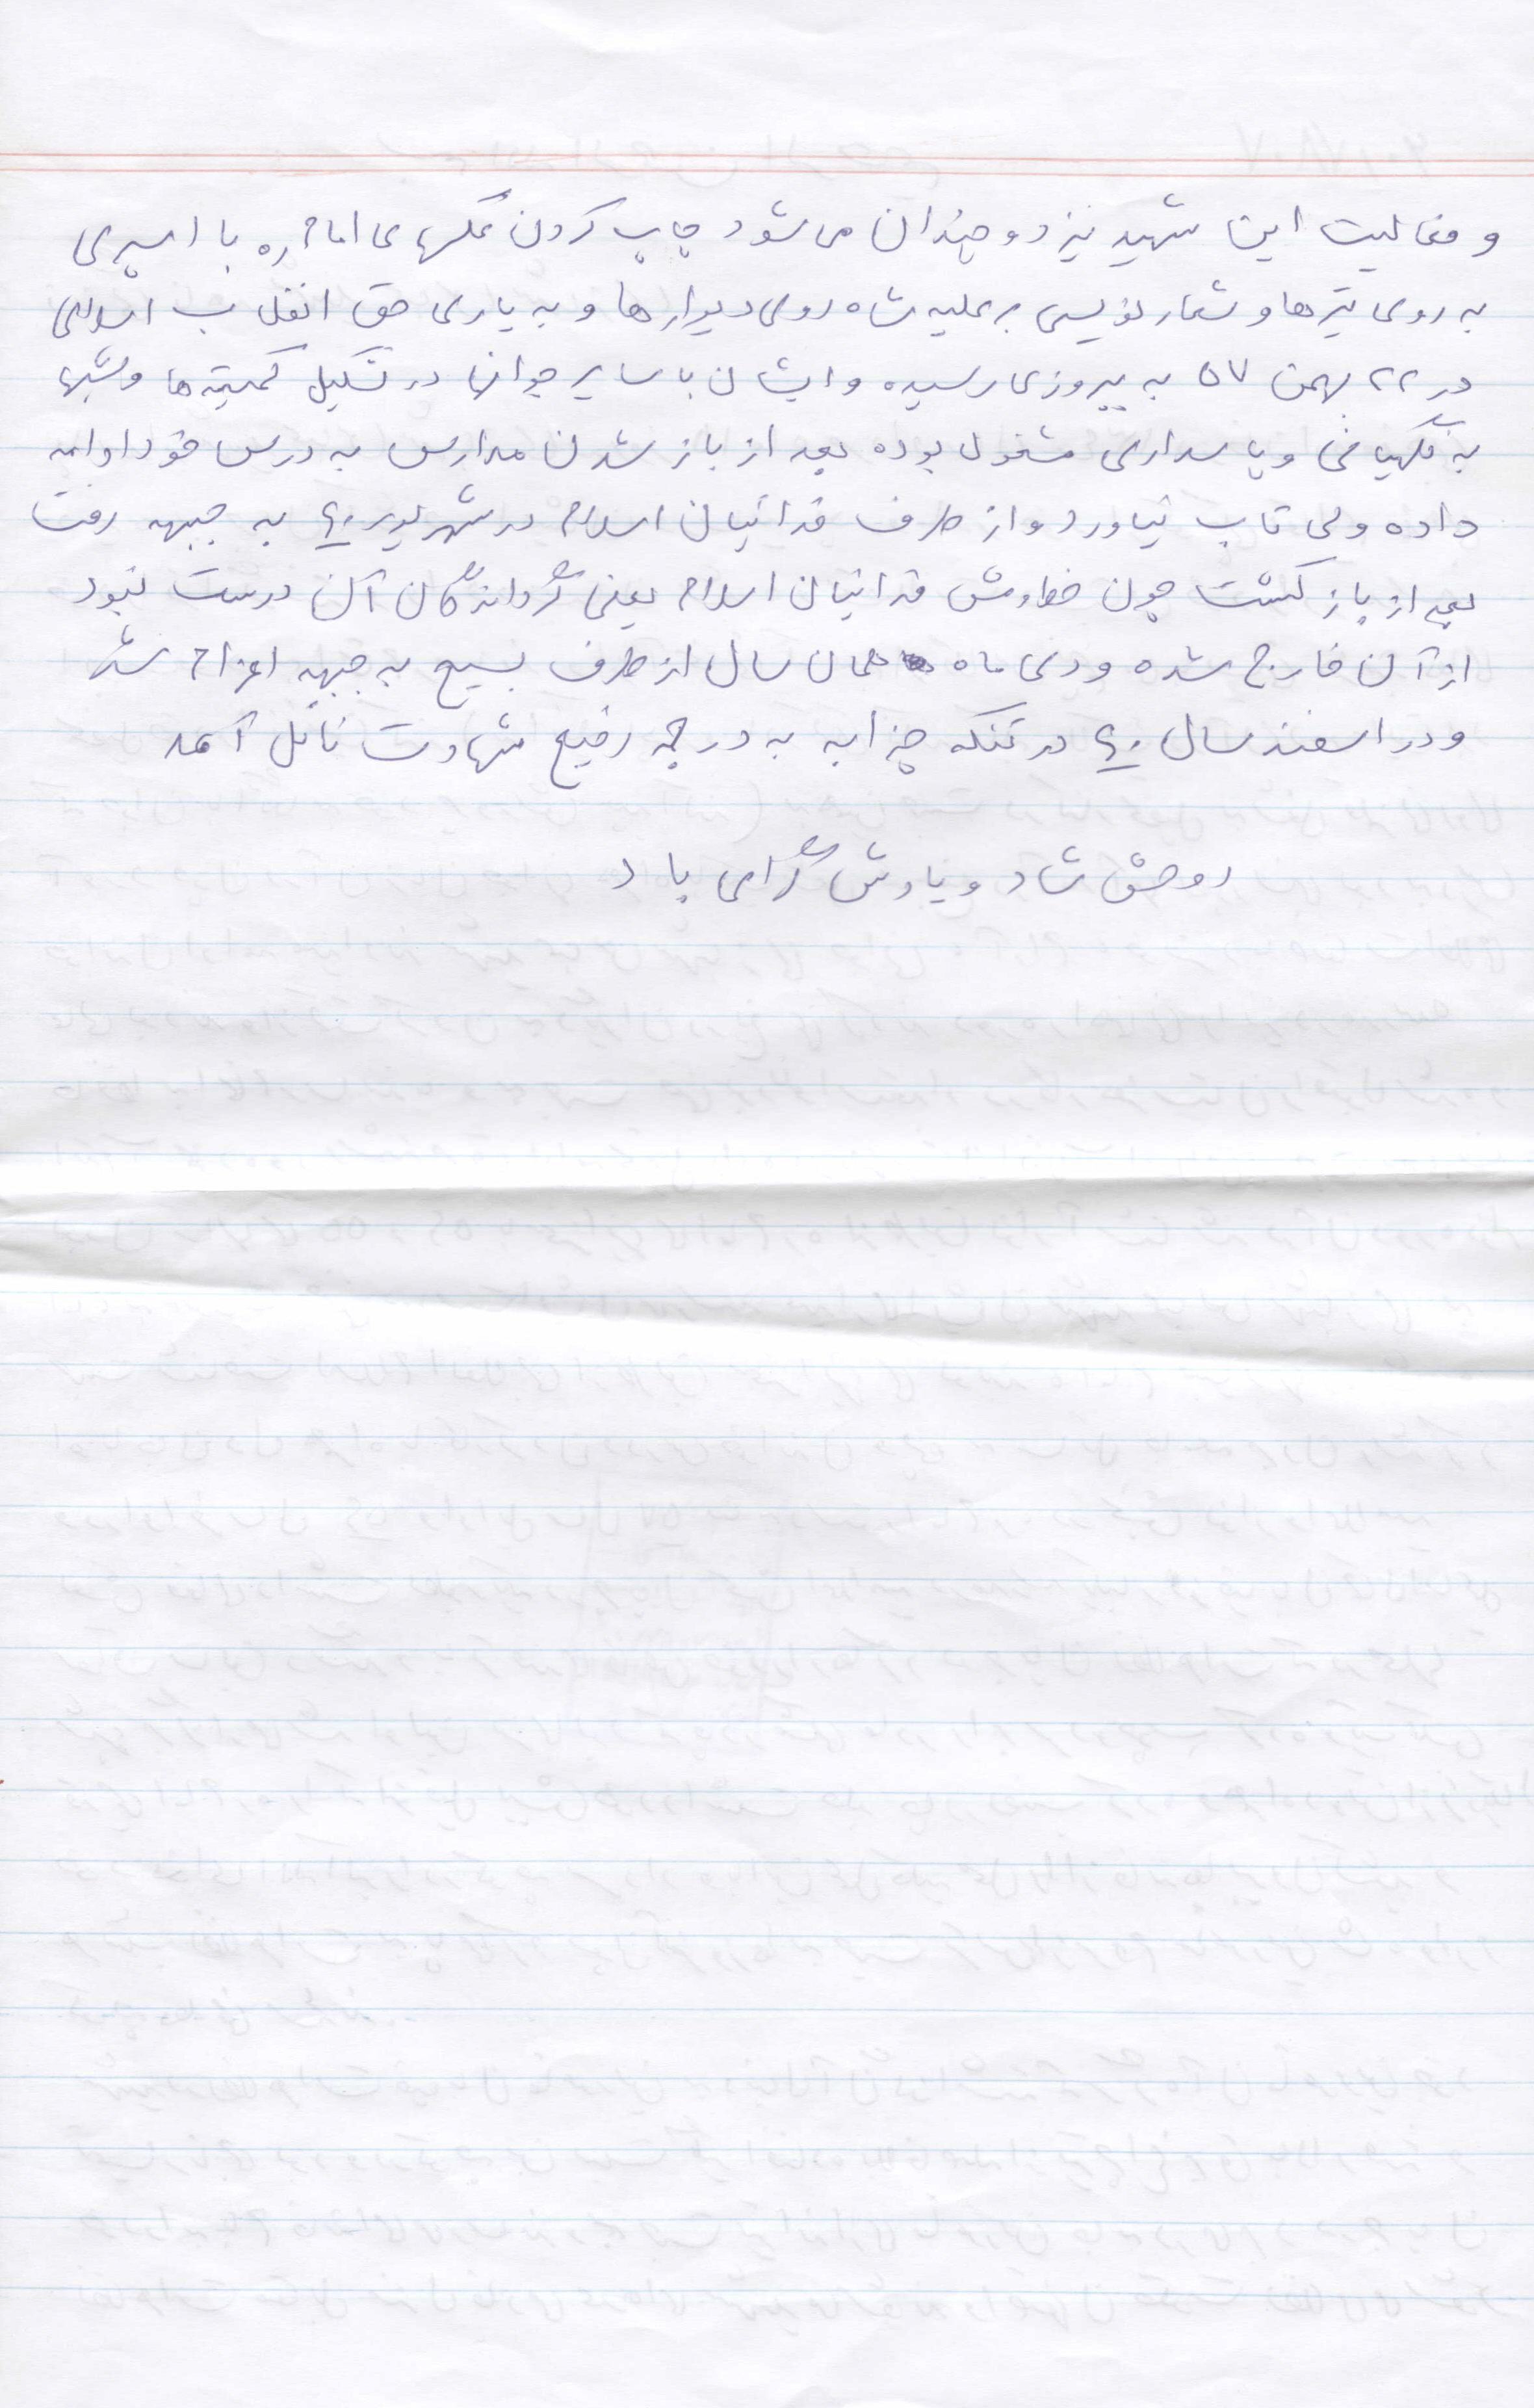 و فعالیت این شهید نیز دو چندان می شود چاپ کردن عکسهای امام ره با اسپری
به روی تیرها و شعار نویسی بر علیه شاه روی دیوارها و به یاری حق انقلاب اسلامی
در ۲۲ بهمن ۵۷ به پیروزی رسیده و ایشان با سایر جوانها در تشکیل کمیته ها و شبها
به نگهبانی و پاسداری مشغول بوده بعد از باز شدن مدارس به درس خود ادامه
داده ولی تاب نیاورد و از طرف فدائیان اسلام در شهریور ۶۰ به جبهه رفت
بعد از باز گشت چون خط و مش فدائیان اسلام یعنی گردانندگان آن درست نبود
از آن خارج شده و دی ماه همان سال از طرف بسیج به جبهه اعزام شد
و در اسفند سال ۶۰ در تنگه چزابه به درجه رفیع شهادت نائل آمد
روحش شاد و یادش گرامی باد